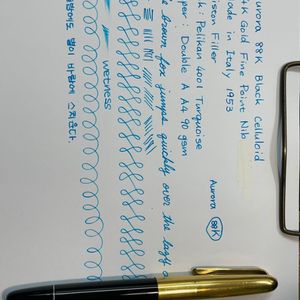 Aurora 88K Black Celluloid
4k Gold Fine Point Nib
ade in Italy 1953
iston Filler
k : Pelikan 4001 Turquoise
per : Double A A4 90 gsm
Aurora 88K
e brown fox jumps quickly over the lazy
wetness
밤에도 별이 바람에 스치운다